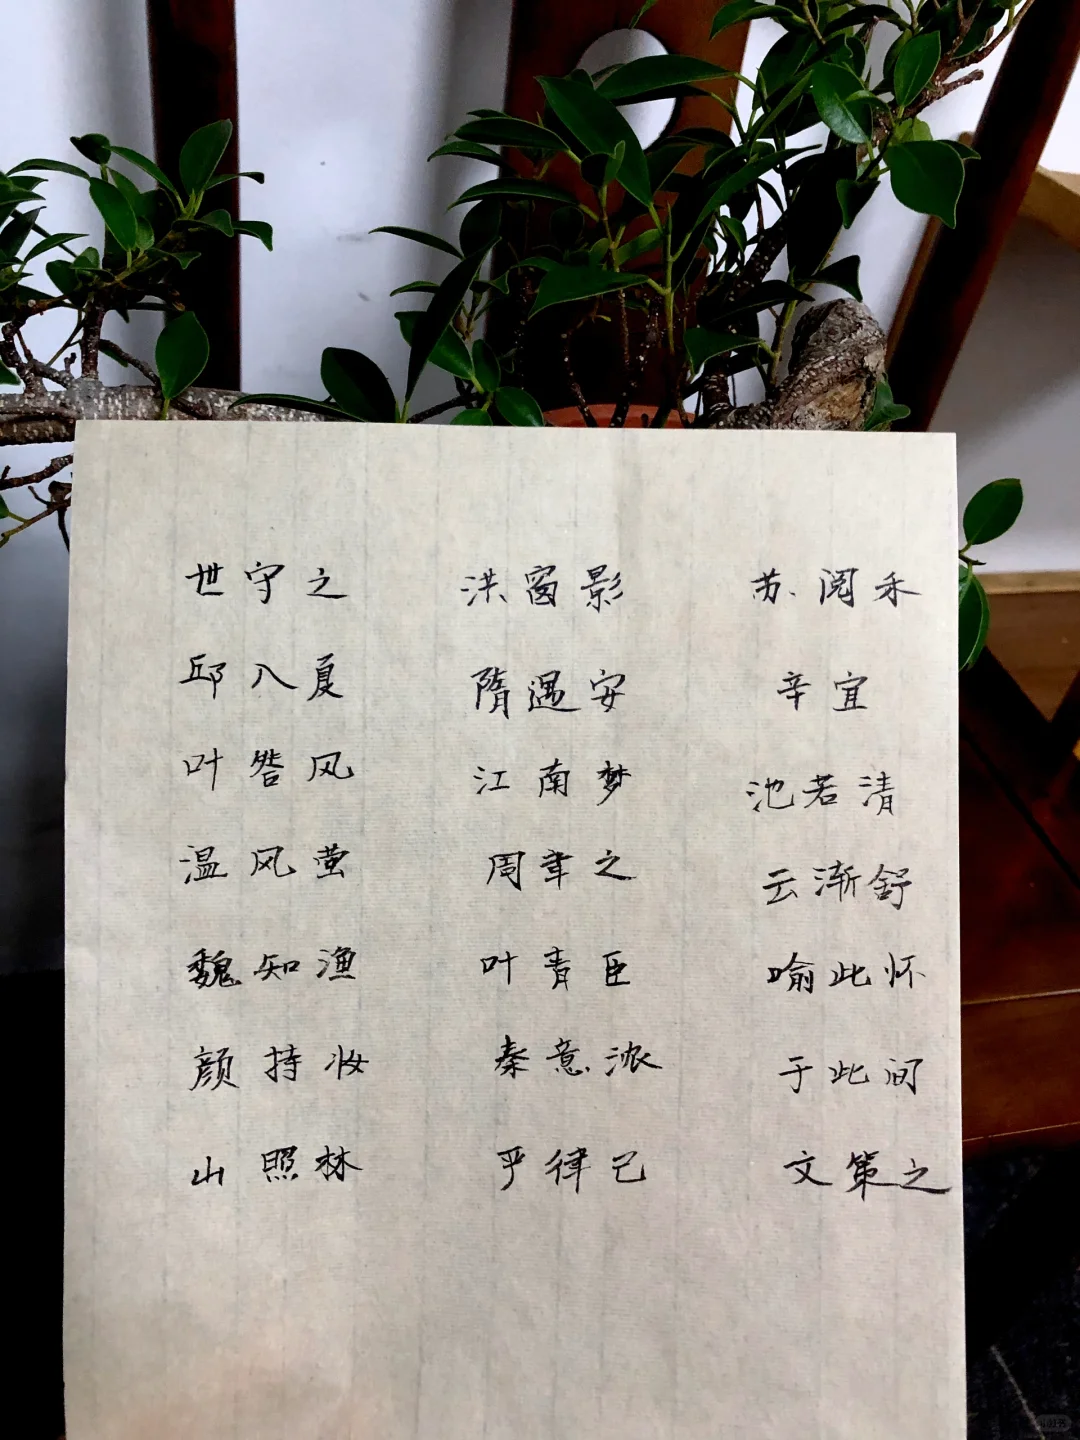 世守之 洪窗影 苏阅禾
邱入夏 隋遇安 辛宜
叶 风 江南梦 池若清
温风萤 周聿之 云渐舒
魏知渔 叶青臣 喻此怀
颜持妆 秦意浓 于此间
山照林 严律己 文策之
小红书